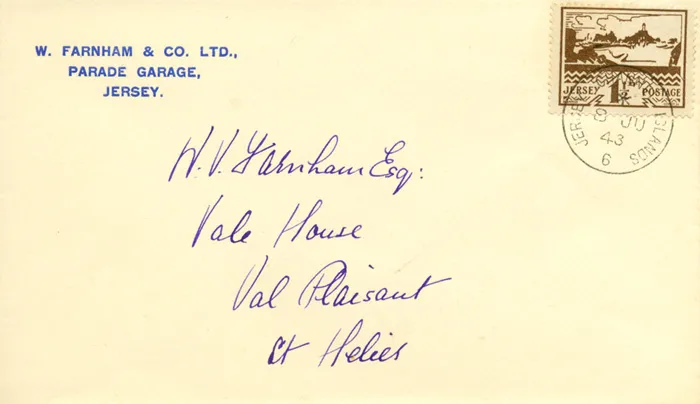 W. FARNHAM & CO. LTD.,
PARADE GARAGE,
JERSEY.
JERSEY 1½ POSTAGE
JERSEY ISLANDS
8 JU
43
6
W. V. Farnham Esq:
Vale House
Val Plaisant
St Helier